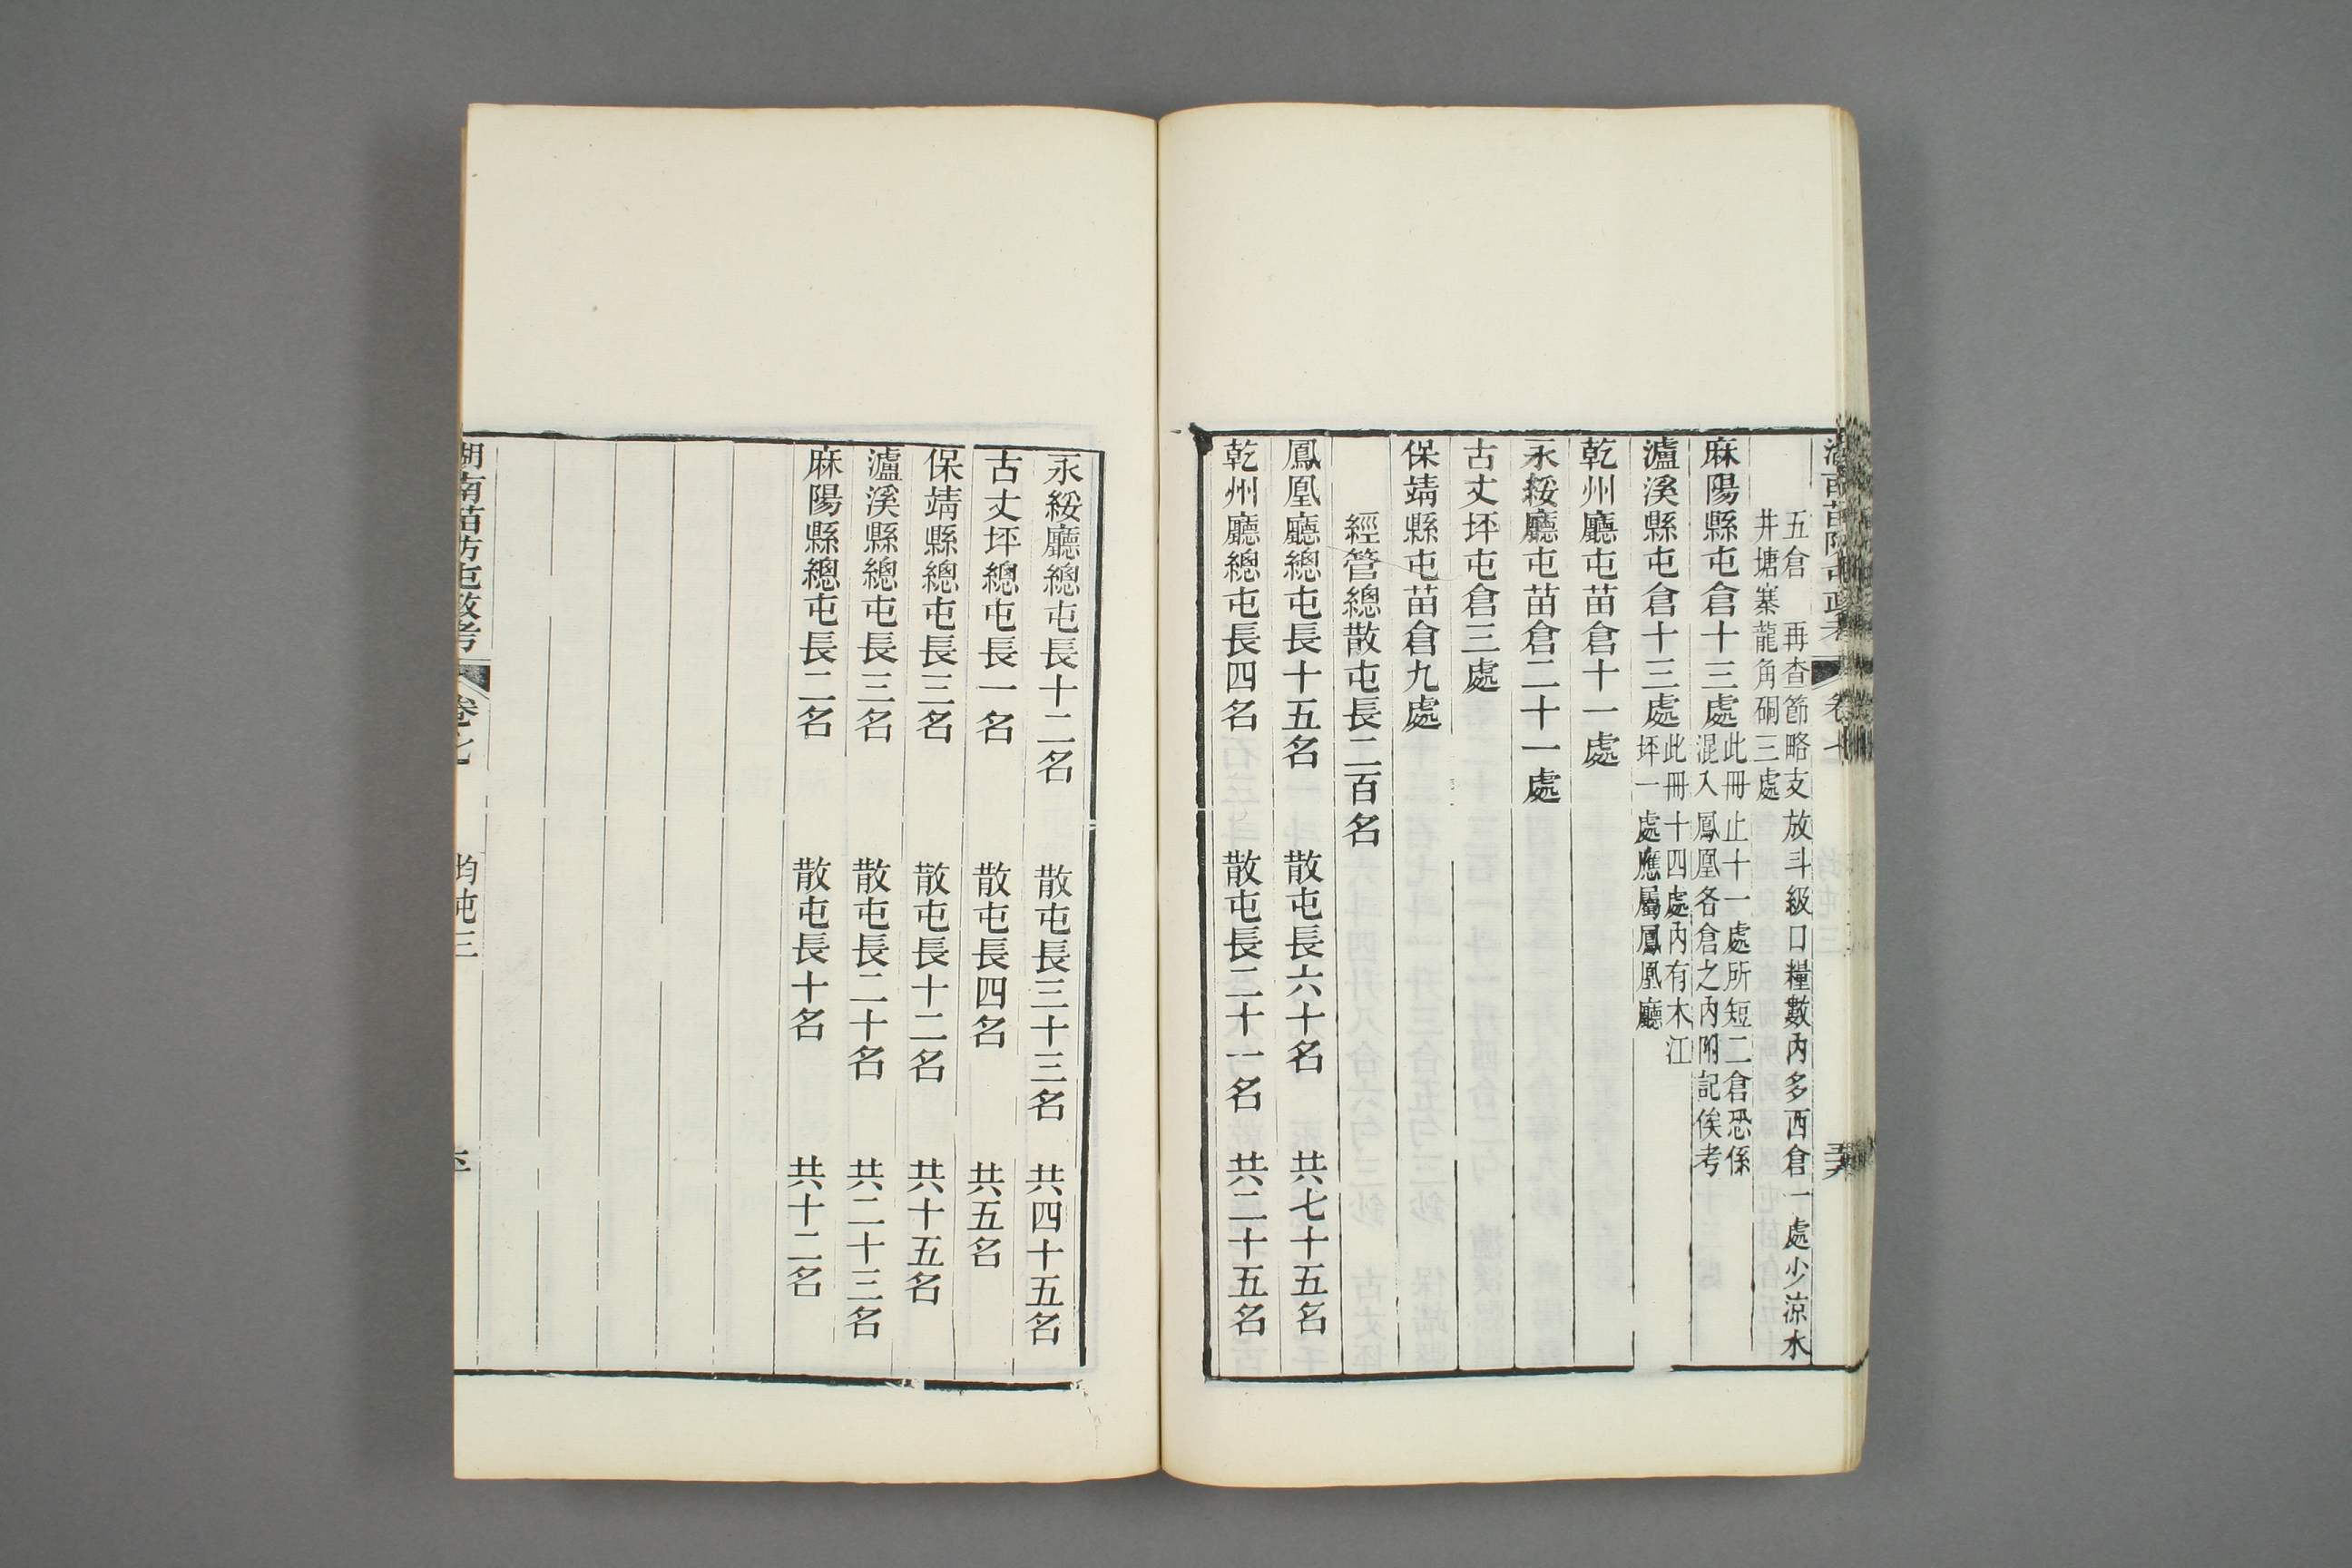 五倉　再查節略支放斗級口糧數內多西倉一處少涼水
井塘寨龍角硐三處
麻陽縣屯倉十三處此冊止十一處所短二倉恐係
混入鳳凰各倉之內附記俟考
瀘溪縣屯倉十三處此冊十四處內有木江
坪一處應屬鳳凰廳
乾州廳屯苗倉十一處
永綏廳屯苗倉二十一處
古丈坪屯倉三處
保靖縣屯苗倉九處
經管總散屯長二百名
鳳凰廳總屯長十五名　散屯長六十名　共七十五名
乾州廳總屯長四名　散屯長二十一名　共二十五名
永綏廳總屯長十二名　散屯長三十三名　共四十五名
古丈坪總屯長一名　散屯長四名　共五名
保靖縣總屯長三名　散屯長十二名　共十五名
瀘溪縣總屯長三名　散屯長二十名　共二十三名
麻陽縣總屯長二名　散屯長十名　共十二名
湖南苗防屯政考　卷七　均屯三